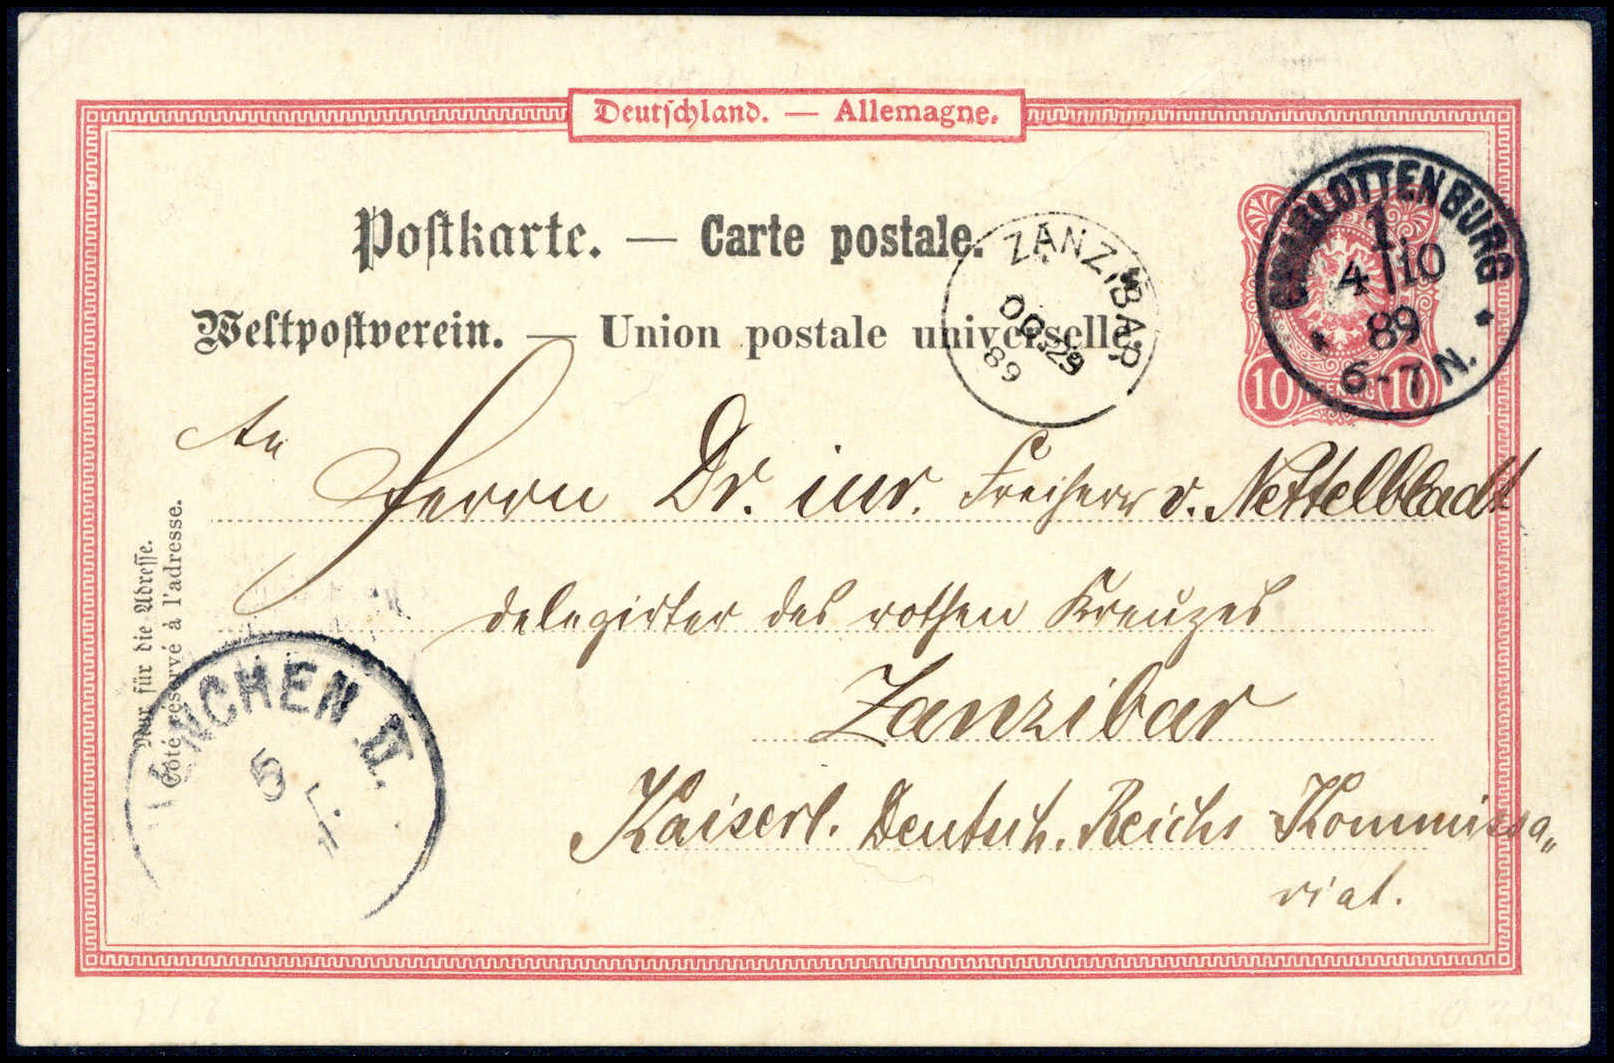 Deutschland. — Allemagne.
Postkarte. — Carte postale.
Weltpostverein. — Union postale universelle.
CHARLOTTENBURG
1.
4 10
89
6-7 N.
10 PFENNIG 10
ZANZIBAR
OC 29
89
An
Herrn Dr. iur. Freiherr v. Nettelbladt
delegirter des rothen Kreuzes
Zanzibar
Kaiserl. Deutsch. Reichs Kommissa„
riat.
Nur für die Adresse.
Côté réservé à l'adresse.
MÜNCHEN II.
5